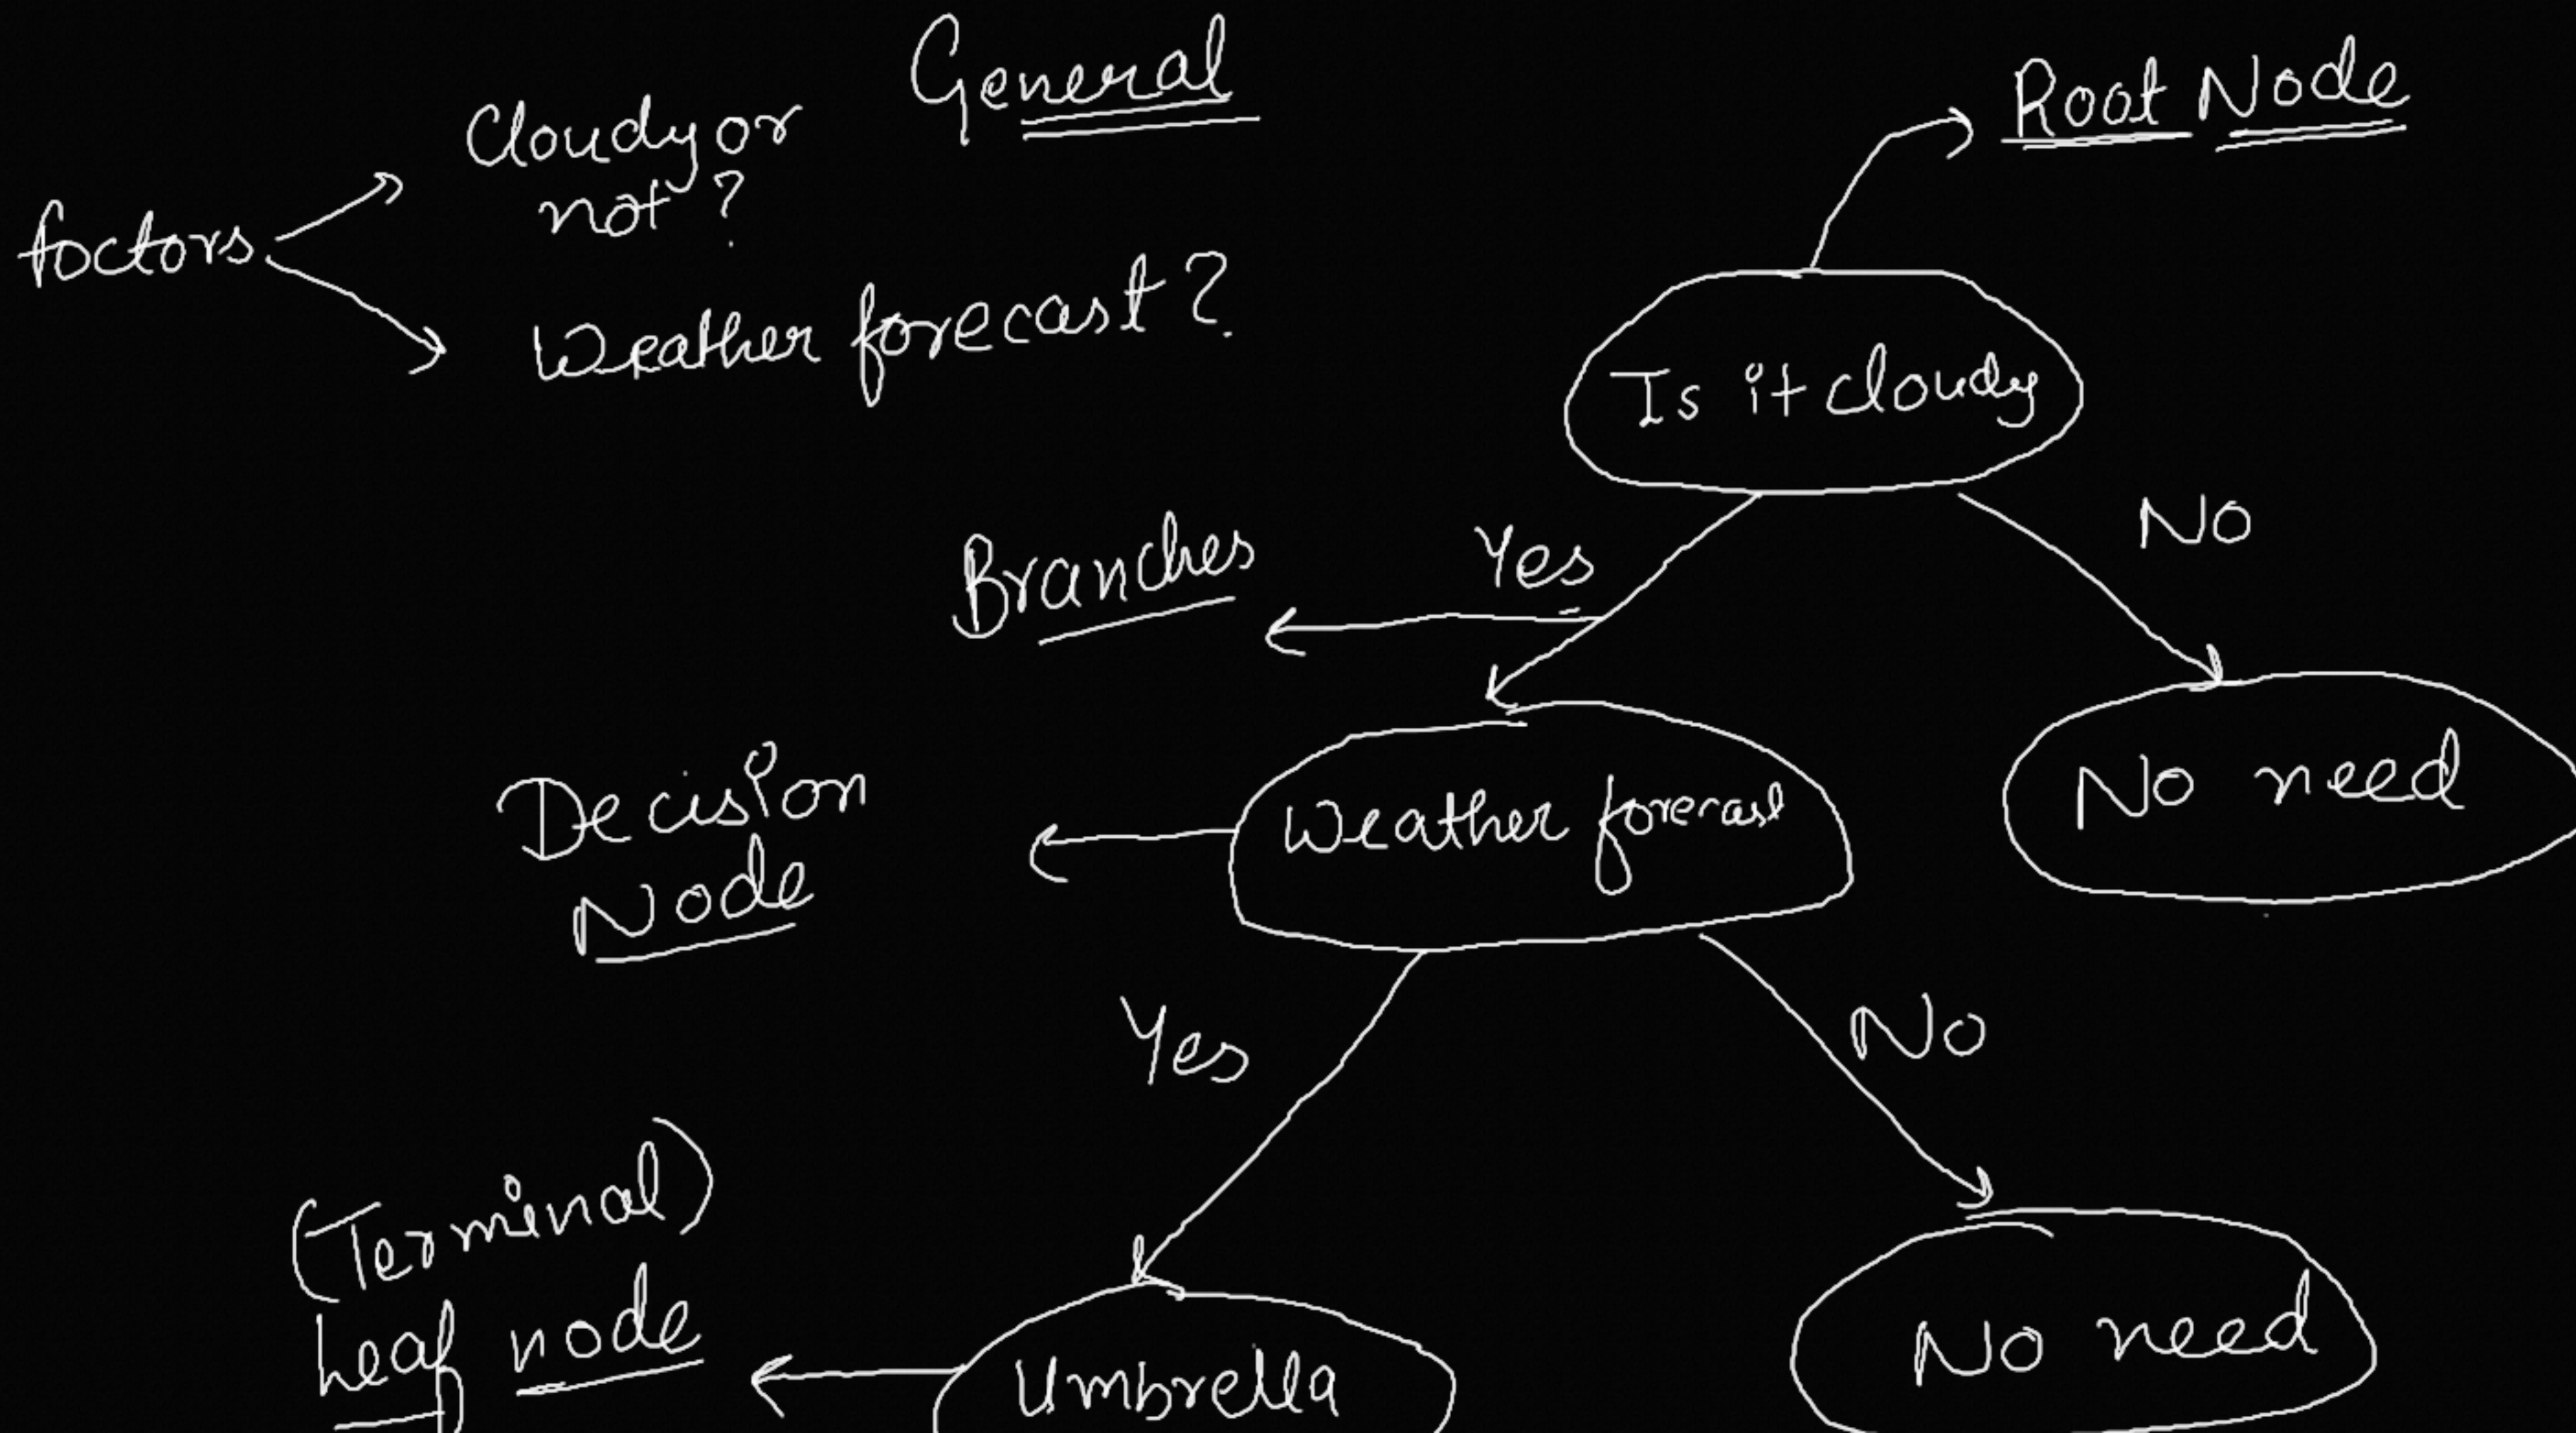 General
Cloudy or
not?
foctors
Weather forecast?
Root Node
Is it cloudy
Yes
No
Branches
Weather forecast
No need
Decision
Node
Yes
No
(Terminal)
Leaf node
Umbrella
No need